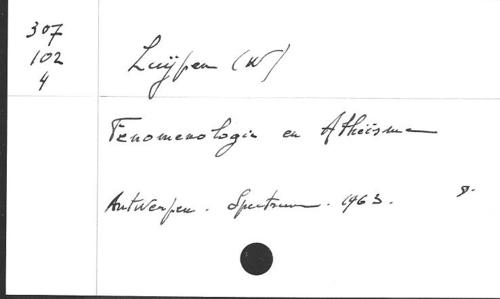 307
102
4
Luijpen (W)
Fenomenologie en Atheïsme
Antwerpen. Spectrum. 1963. 8.